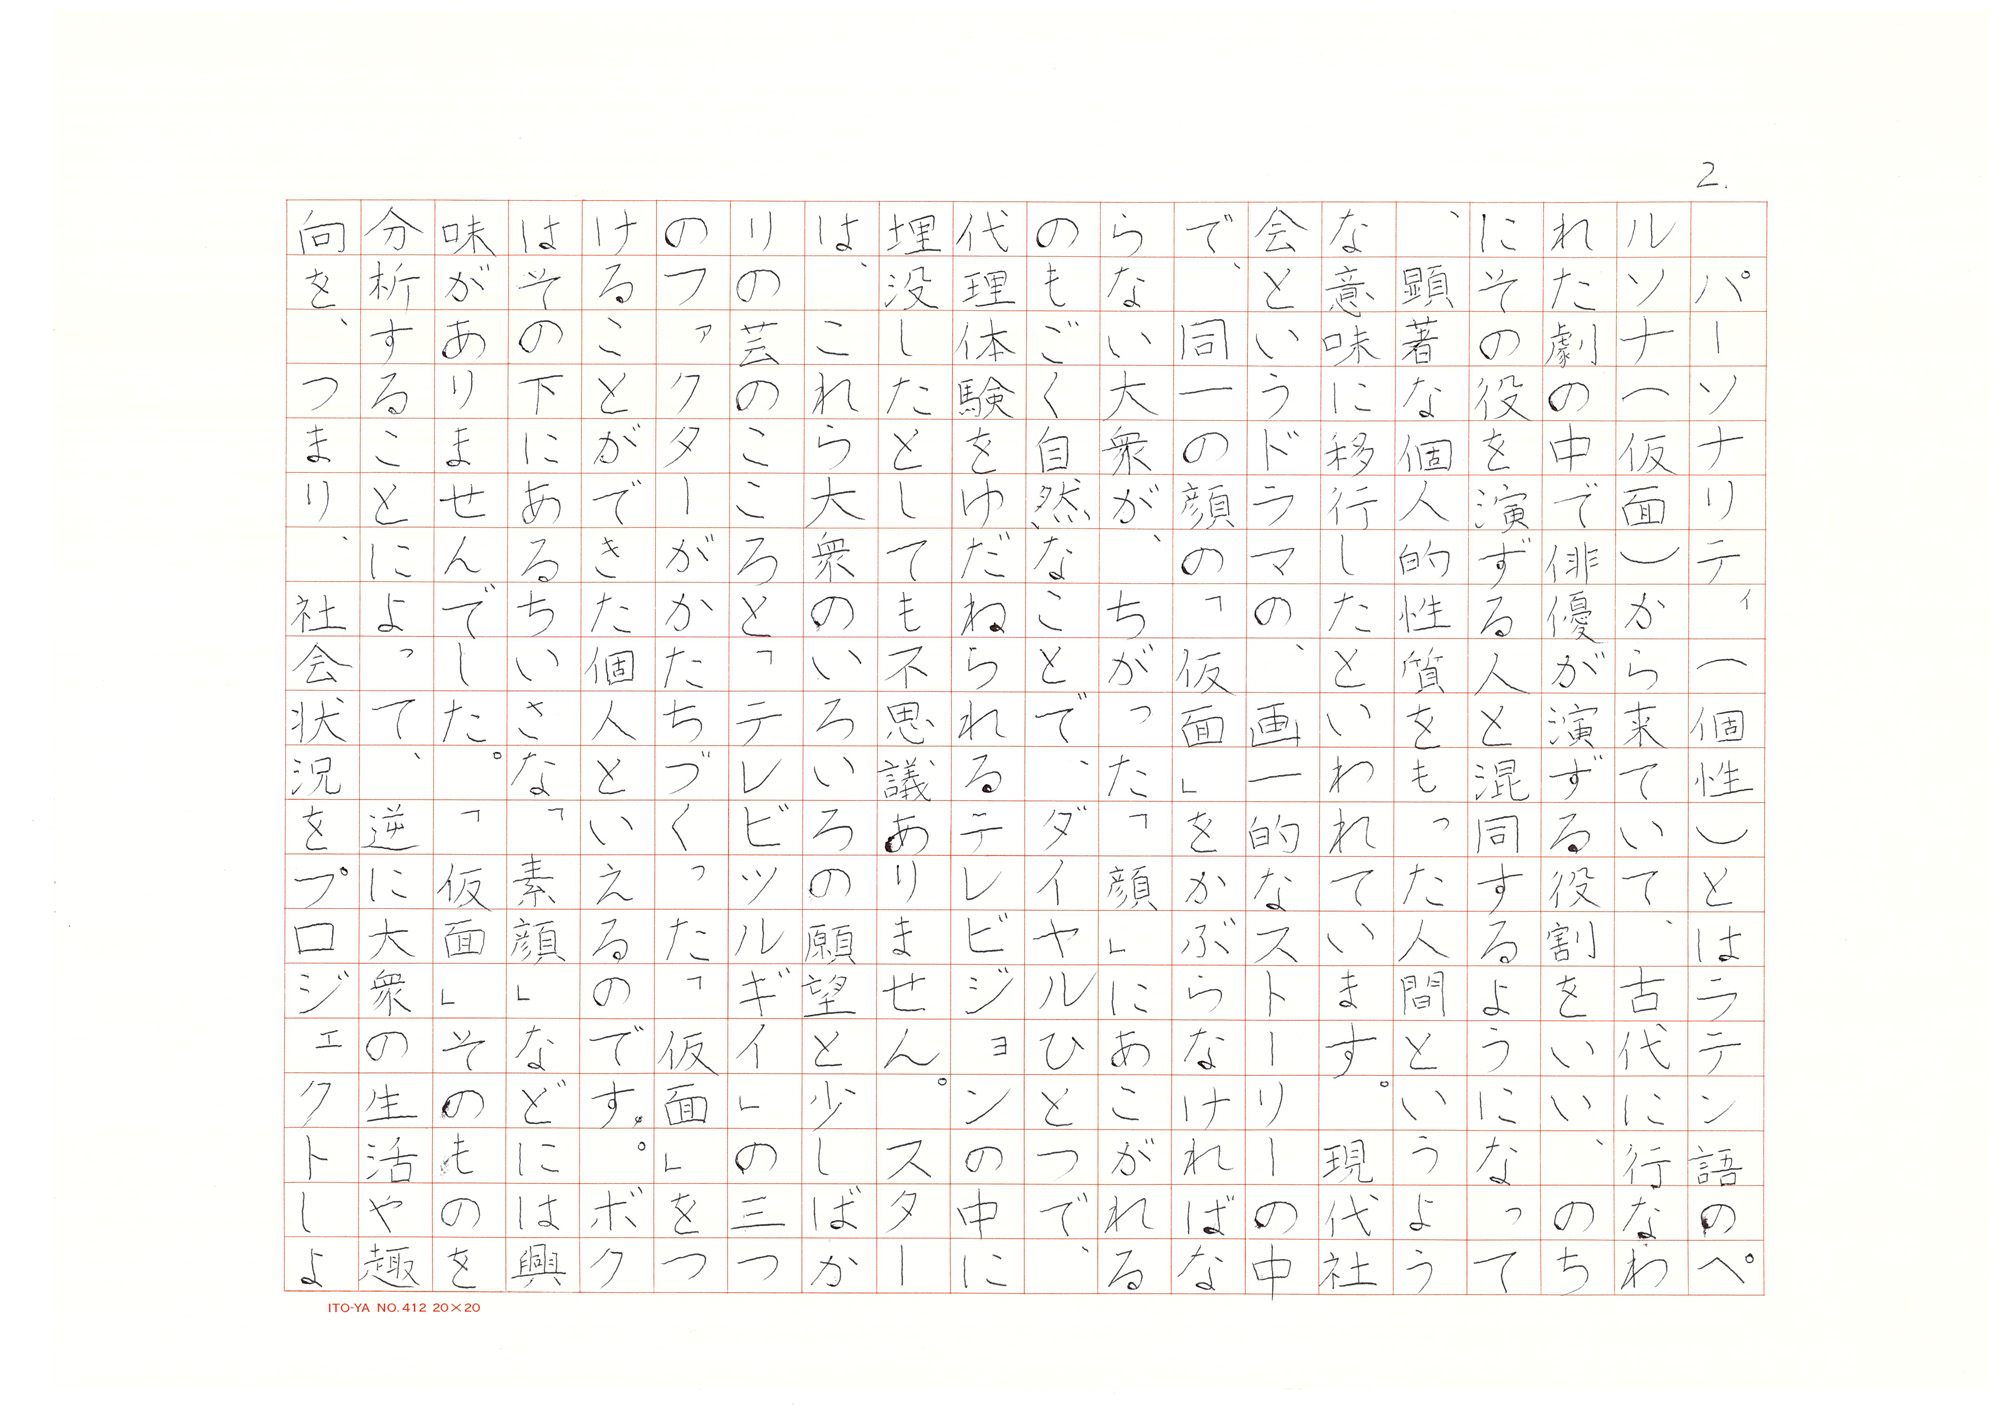 2.
パーソナリティ(個性)とはラテン語のペ
ルソナ(仮面)から来ていて、古代に行なわ
れた劇の中で俳優が演ずる役割をいい、のち
にその役を演ずる人と混同するようになって
、顕著な個人的性質をもった人間というよう
な意味に移行したといわれています。現代社
会というドラマの、画一的なストーリーの中
で、同一の顔の「仮面」をかぶらなければな
らない大衆が、ちがった「顔」にあこがれる
のもごく自然なことで、ダイヤルひとつで、
代理体験をゆだねられるテレビジョンの中に
埋没したとしても不思議ありません。スター
は、これら大衆のいろいろの願望と少しばか
りの芸のこころと「テレビツルギイ」の三つ
のファクターがかたちづくった「仮面」をつ
けることができた個人といえるのです。ボク
はその下にあるちいさな「素顔」などには興
味がありませんでした。「仮面」そのものを
分析することによって、逆に大衆の生活や趣
向を、つまり、社会状況をプロジェクトしよ
ITO-YA NO.412 20×20